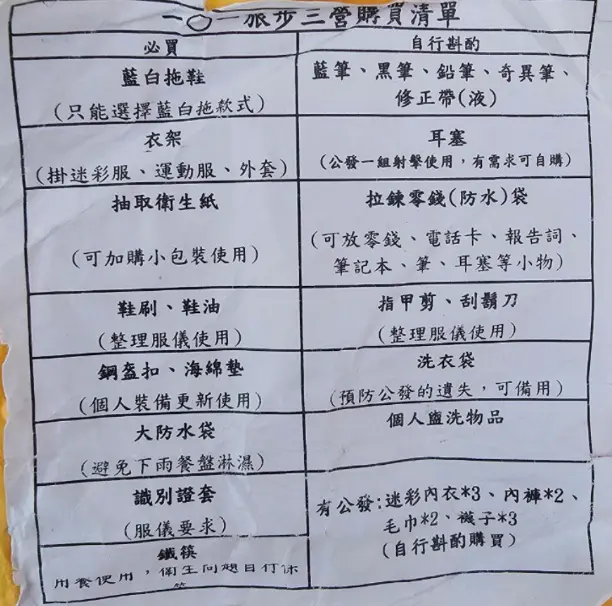 一〇一旅步三營購買清單
必買
自行斟酌
藍白拖鞋
(只能選擇藍白拖款式)
藍筆、黑筆、鉛筆、奇異筆、
修正帶(液)
衣架
(掛迷彩服、運動服、外套)
耳塞
(公發一組射擊使用，有需求可自購)
抽取衛生紙
(可加購小包裝使用)
拉鍊零錢(防水)袋
(可放零錢、電話卡、報告詞、
筆記本、筆、耳塞等小物)
鞋刷、鞋油
(整理服儀使用)
指甲剪、刮鬍刀
(整理服儀使用)
鋼盔扣、海綿墊
(個人裝備更新使用)
洗衣袋
(預防公發的遺失，可備用)
大防水袋
(避免下雨餐盤淋濕)
個人盥洗物品
識別證套
(服儀要求)
有公發:迷彩內衣*3、內褲*2、
毛巾*2、襪子*3
(自行斟酌購買)
鐵筷
用餐使用，衛生問題自行保